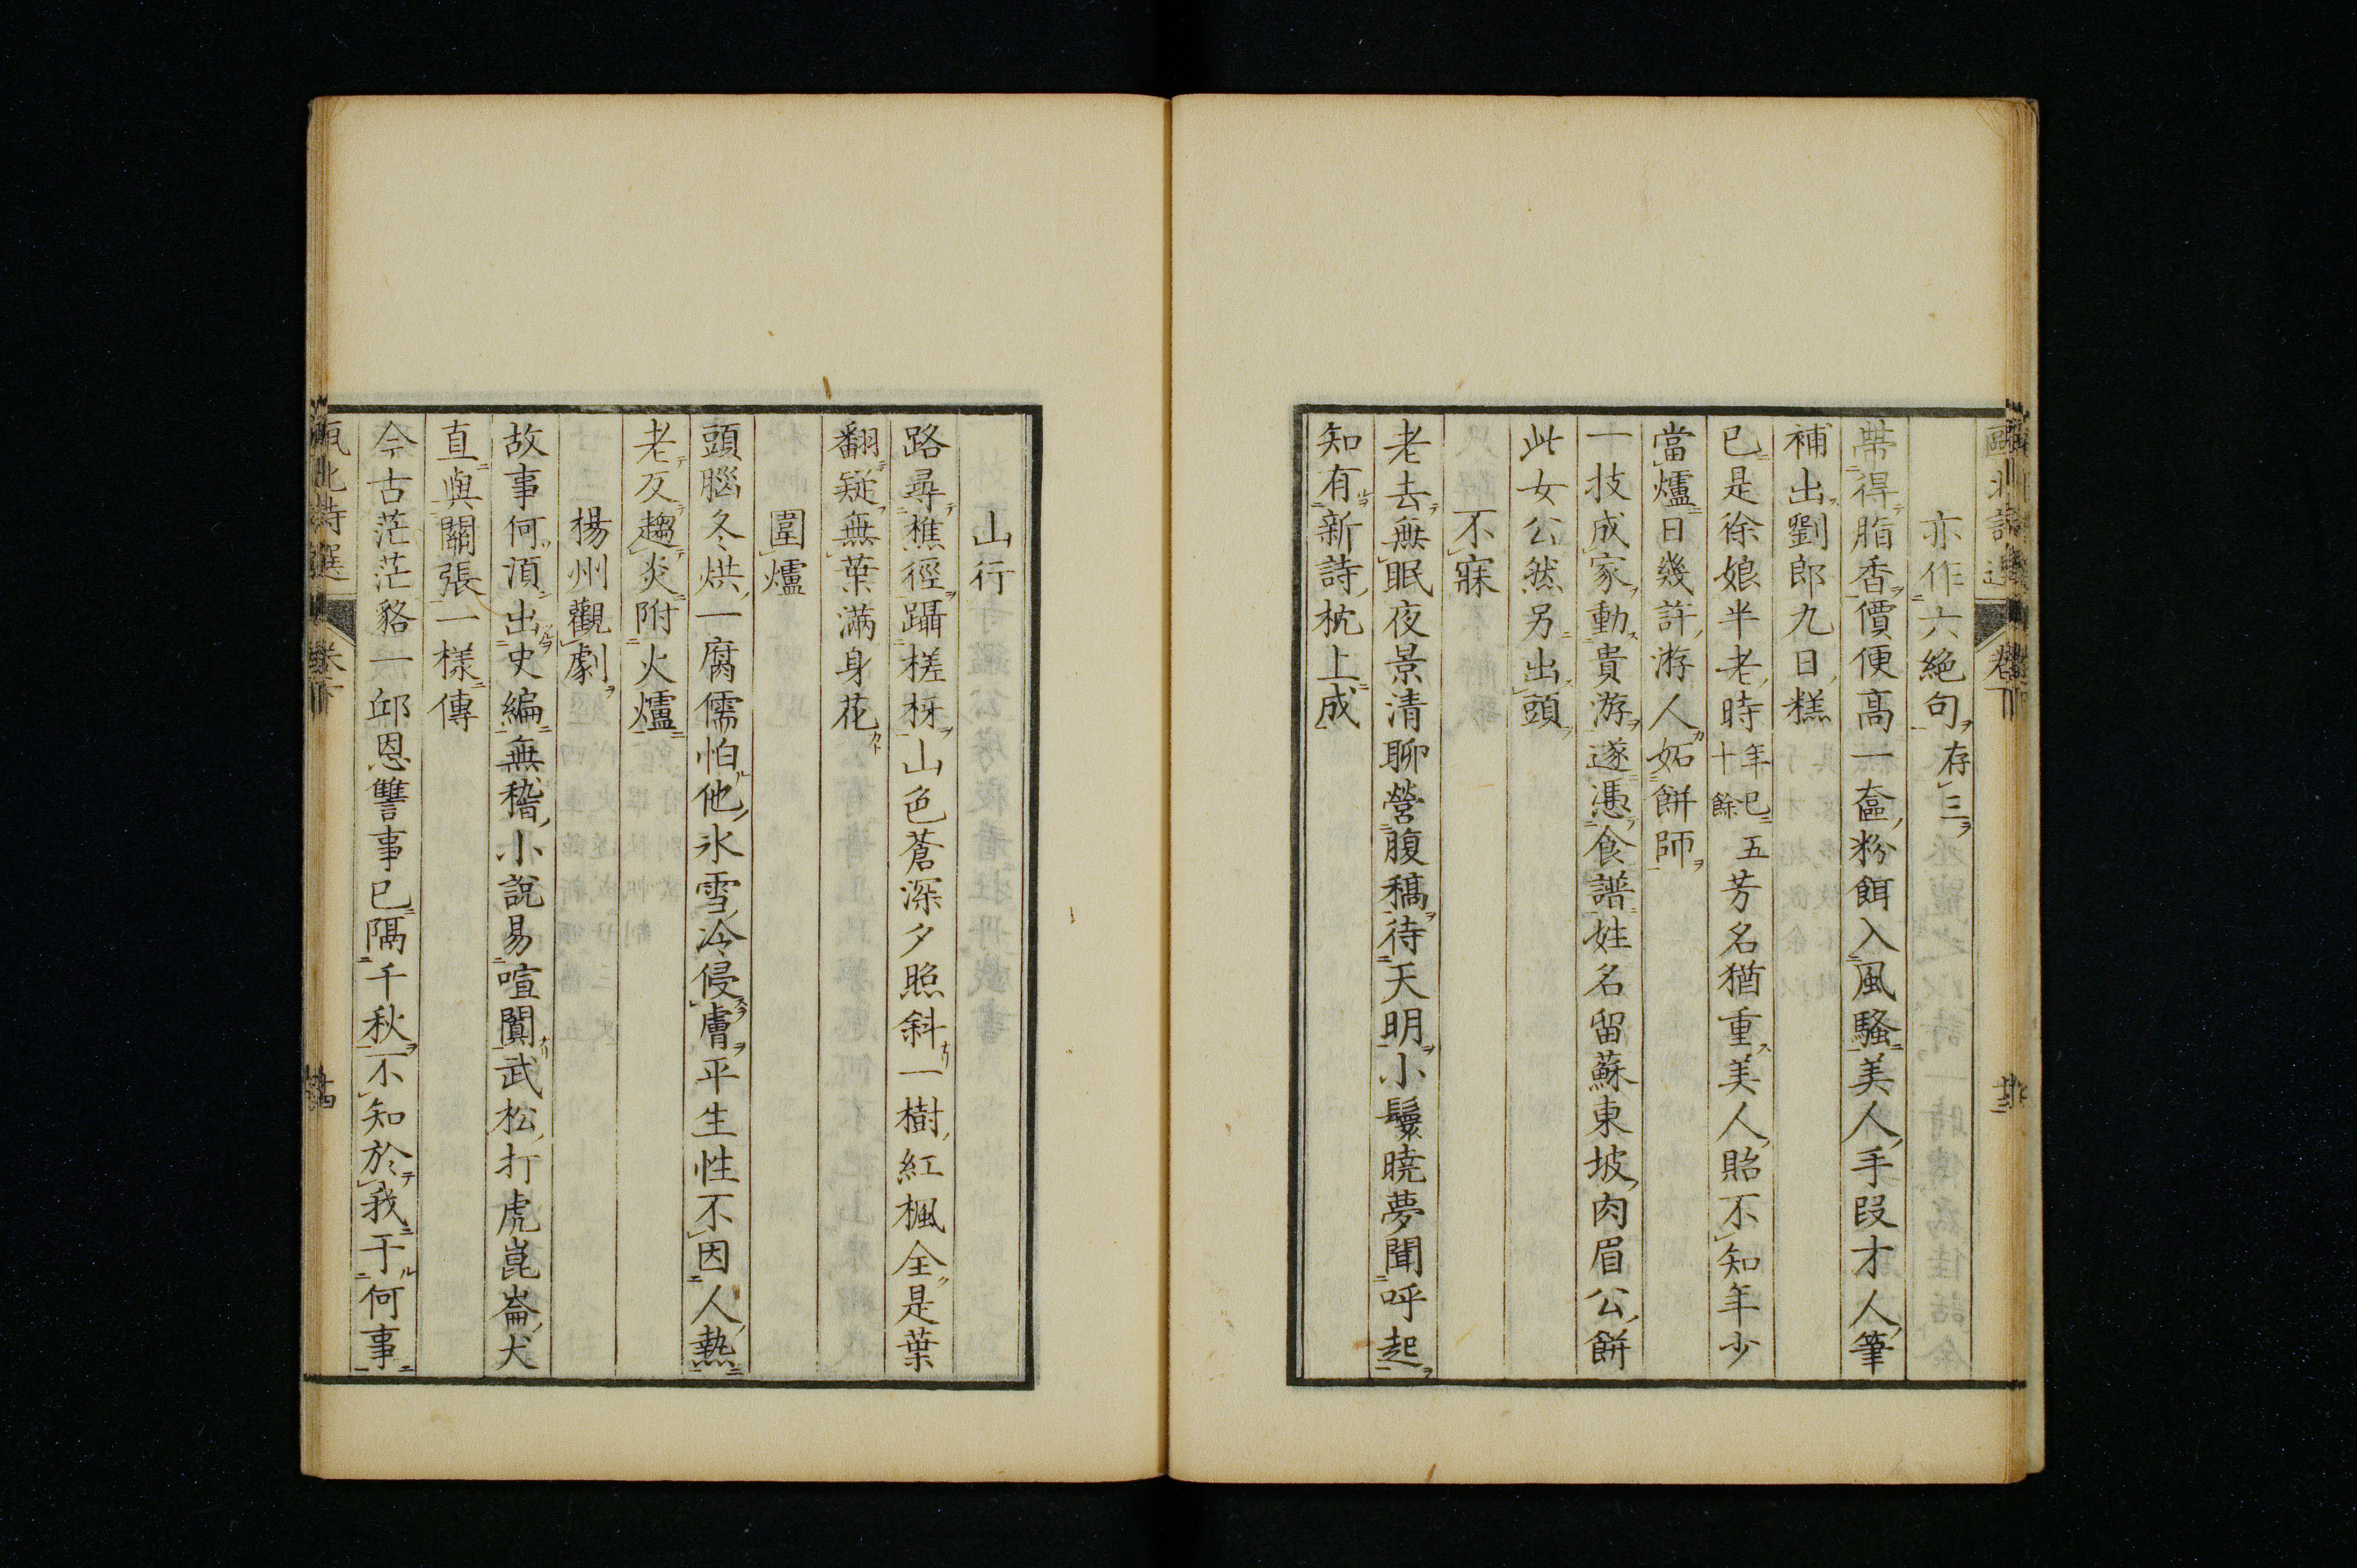 亦作六絶句存三
帶得脂香價便高一奩粉餌入風騷美人手段才人筆
補出劉郎九日糕
已是徐娘半老時年已五十餘芳名猶重美人貽不知年少
當爐日幾許游人妬餅師
一技成家動貴游遂憑食譜姓名留蘇東坡肉眉公餅
此女公然另出頭
不寐
老去無眠夜景清聊營腹稿待天明小鬟曉夢聞呼起
知有新詩枕上成
山行
路尋樵徑躡槎枒山色蒼深夕照斜一樹紅楓全是葉
翻疑無葉滿身花
圍爐
頭腦冬烘一腐儒怕他氷雪冷侵膚平生性不因人熱
老反趨炎附火爐
楊州觀劇
故事何須出史編無稽小說易喧闐武松打虎崑崙犬
直與關張一樣傳
今古茫茫貉一邱恩讐事已隔千秋不知於我干何事
甌北詩選
卷下